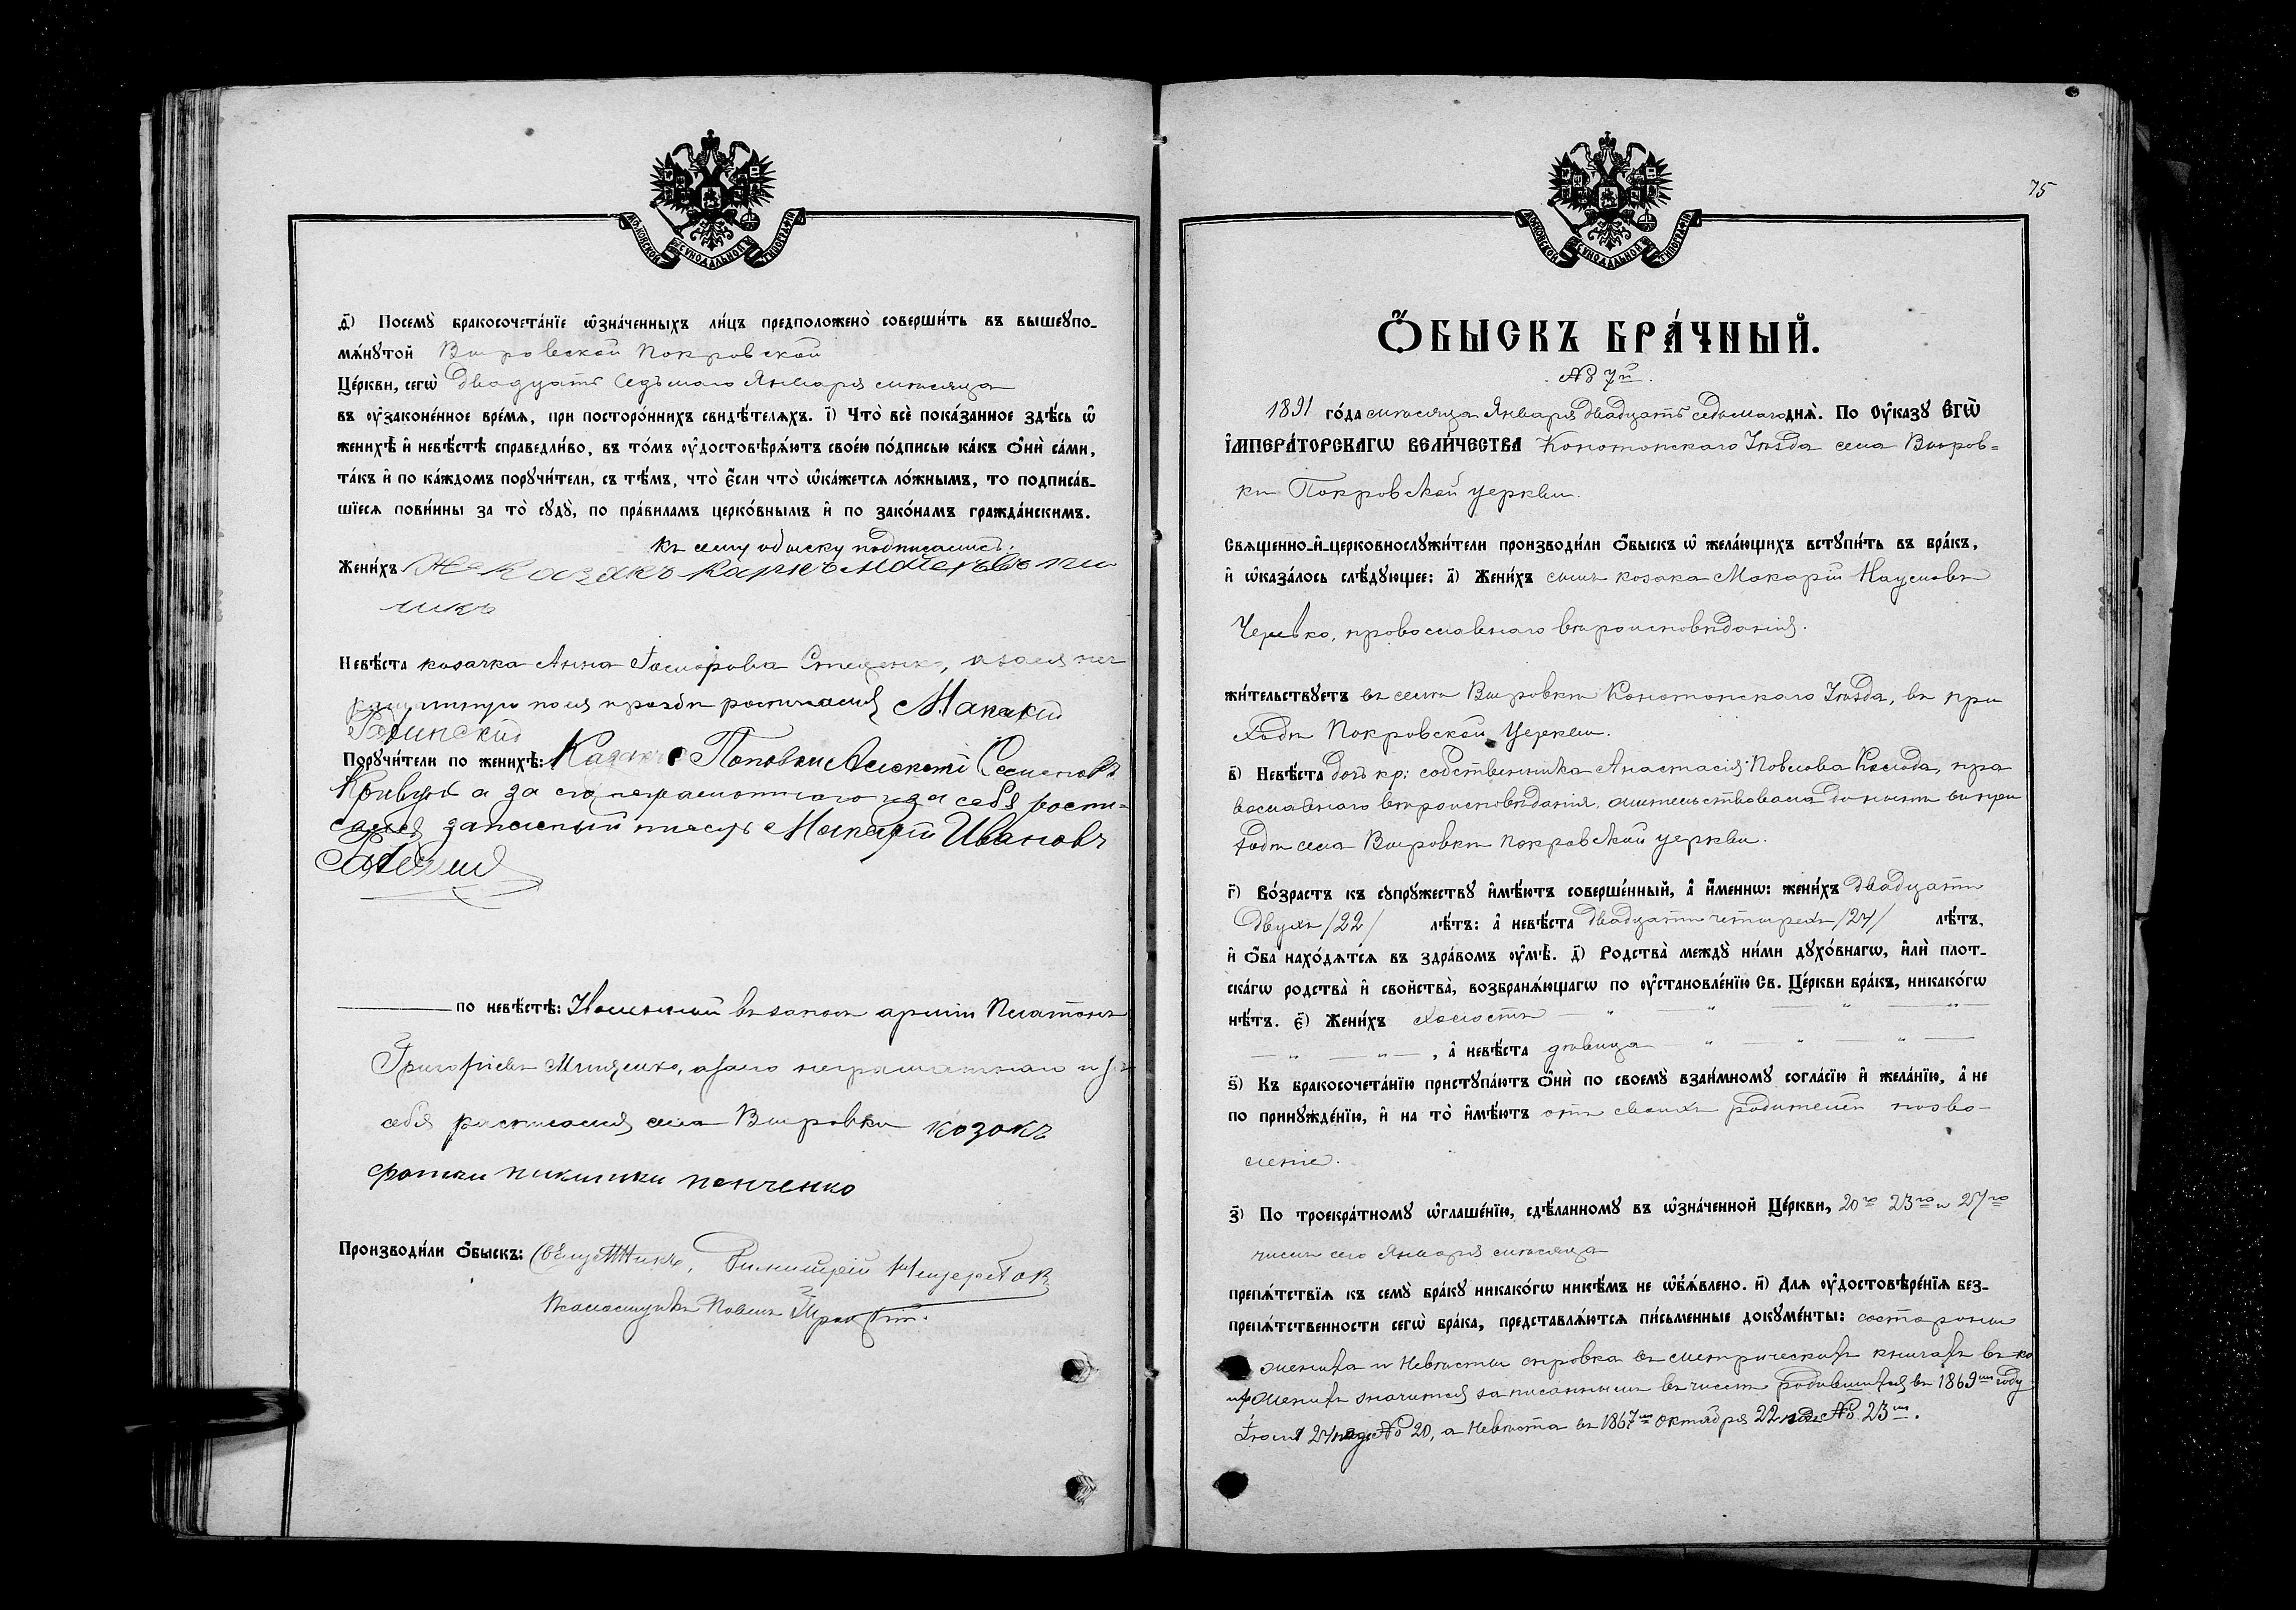 МОСКОВСКОЙ СѴНОДАЛЬНОЙ ТИПОГРАФІИ
д҃) Посемꙋ̀ бракосочета́нїе ѡ҆зна́ченныхъ ли́цъ предположено̀ соверши́ть въ вышеꙋпо-
мѧ́нꙋтой Вировской Покровской
Це́ркви, сегѡ̀ двадцать седьмаго Января месяца
въ ᲂу҆законе́нное вре́мѧ, при посторо́ннихъ свидѣ́телѧхъ. і҃) Что̀ всѐ пока́занное здѣ́сь ѡ҆
женихѣ̀ и҆ невѣ́стѣ справедли́во, въ то́мъ ᲂу҆достовѣрѧ́ютъ свое́ю по́дписью ка́къ ѻ҆нѝ са́ми,
та́къ и҆ по ка́ждомъ порꙋчи́тели, съ тѣ́мъ, что̀ є҆́сли что̀ ѡ҆ка́жетсѧ ло́жнымъ, то подписа́в-
шїесѧ пови́нны за то̀ сꙋдꙋ̀, по пра́виламъ церко́внымъ и҆ по зако́намъ гражда́нскимъ.
къ сему обыску подписались:
Жени́хъ Козакъ
Невѣ́ста козачка Анна Стеценко, а за нея не
грамотную по ея прозьбе росписался Макарий
Порꙋчи́тели по женихѣ̀: Козакъ Поповки Алексей Семеновъ
а за его неграмотнаго и за себя роспи-
сался запасный писарь Макарій Ивановъ
по невѣ́стѣ: Уволенный въ запасъ арміи Платонъ
Григоріевъ Мищенко, а за его неграмотнаго и за
себя росписался села Вировки козокъ
панченко
Производи́ли ѻ҆́быскъ: Священникъ, Димитрій
Псаломщикъ Павелъ
75
МОСКОВСКОЙ СѴНОДАЛЬНОЙ ТИПОГРАФІИ
Ѻ҆́БЫСКЪ БРА́ЧНЫЙ.
№ 7й.
1891 го́да месяца Января двадцать седьмаго днѧ̀. По Оу҆казꙋ Є҆ГѠ̀
І҆МПЕРА́ТОРСКАГѠ ВЕЛИ́ЧЕСТВА Конотопскаго Уезда села Виров=
ки Покровской церкви.
Свѧщенно-и҆-церковнослꙋжи́тели производи́ли ѻ҆́быскъ ѡ҆ жела́ющихъ встꙋпи́ть въ бра́къ,
и҆ ѡ҆каза́лось слѣ́дꙋющее: а҃) Жени́хъ сынъ козака Макарій Наумовъ
православнаго вероисповеданія.
жи́тельствꙋетъ въ селе Вировке Конотопскаго Уезда, въ при
ходе Покровской Церкви.
в҃) Невѣ́ста дочь кр: собственника Анастасія Павлова Коляда, пра
вославнаго вероисповеданія, жительствовала доныне въ при
ходе села Вировки покровской церкви.
г҃) Во́зрастъ къ сꙋпрꙋ́жествꙋ и҆мѣ́ютъ соверше́нный, а҆̀ и҆́меннѡ: жени́хъ двадцати
двухъ /22/ лѣ́тъ: а҆̀ невѣ́ста двадцати четырехъ /24/ лѣ́тъ,
и҆ ѻ҆́ба нахо́дѧтсѧ въ здра́вомъ ᲂу҆мѣ̀. д҃) Родства̀ междꙋ̀ ни́ми дꙋхо́внагѡ, и҆лѝ плот-
ска́гѡ родства̀ и҆ сво́йства, возбранѧ́ющагѡ по ᲂу҆становле́нїю Св. Це́ркви бра́къ, никако́гѡ
нѣ́тъ. є҃) Жени́хъ холостъ — „ — „ — „ —
— „ — „ —, а҆̀ невѣ́ста девица — „ — „ — „ —
ѕ҃) Къ бракосочета́нїю пристꙋпа́ютъ ѻ҆нѝ по своемꙋ̀ взаи́мномꙋ согла́сїю и҆ жела́нїю, а҆̀ не
по принꙋжде́нїю, и҆ на то̀ и҆мѣ́ютъ отъ своихъ родителей позво-
леніе.
з҃) По троекра́тномꙋ ѡ҆глаше́нїю, сдѣ́ланномꙋ въ ѡ҆зна́ченной Це́ркви, 20го 23го и 27го
числъ сего Января месяца
препѧ́тствїѧ къ семꙋ̀ бра́кꙋ никако́гѡ никѣ́мъ не ѡ҆б̾ѧ́влено. и҃) Длѧ ᲂу҆достовѣре́нїѧ без-
препѧ́тственности сегѡ̀ бра́ка, представлѧ́ютсѧ пи́сьменные докꙋме́нты: состороны
жениха и Невесты справка въ метрическихъ книгахъ въ ко
ихъ Женихъ значится записаннымъ въ числе родившихся въ 1869мъ году
Іюля 24 подъ № 20, а Невеста въ 1867мъ октября 22 подъ № 23мъ.